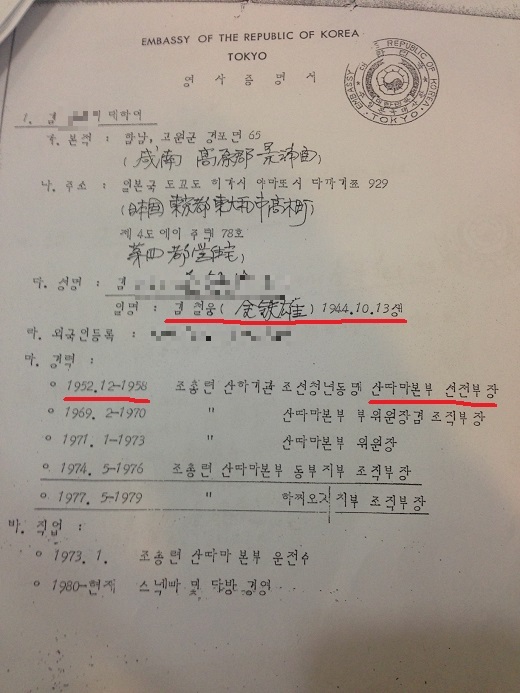 EMBASSY OF THE REPUBLIC OF KOREA
TOKYO
영 사 증 명 서
EMBASSY OF THE REPUBLIC OF KOREA · TOKYO ·
1. 김 에 대하여
가. 본적 : 함남, 고원군 경포면 65
(咸南 高原郡 景浦面)
나. 주소 : 일본국 도꾜도 히가시 야마또시 다까기쪼 929
(日本国 東京都 東大和市 高木町)
제 4도에이 주택 78호
第四 都営住宅)
다. 성명 : 김
일명 : 김 철웅( 金鉄雄 ) 1944.10.13생
라. 외국인등록 :
마. 경력 :
o 1952.12-1958 조총련 산하기관 조선청년동맹 산따마본부 선전부장
o 1969. 2-1970 " 산따마본부 부위원장겸 조직부장
o 1971. 1-1973 " 산따마본부 위원장
o 1974. 5-1976 조총련 산따마본부 동부지부 조직부장
o 1977. 5-1979 " 하찌오지 지부 조직부장
바. 직업 :
o 1973. 1. 조총련 산따마 본부 운전수
o 1980-현재 스넥빠 및 다방 경영